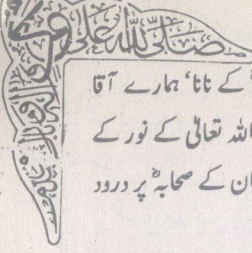 صلى الله على
کے نانا، ہمارے آقا
اللہ تعالیٰ کے نور کے
ان کے صحابہؓ پر درود